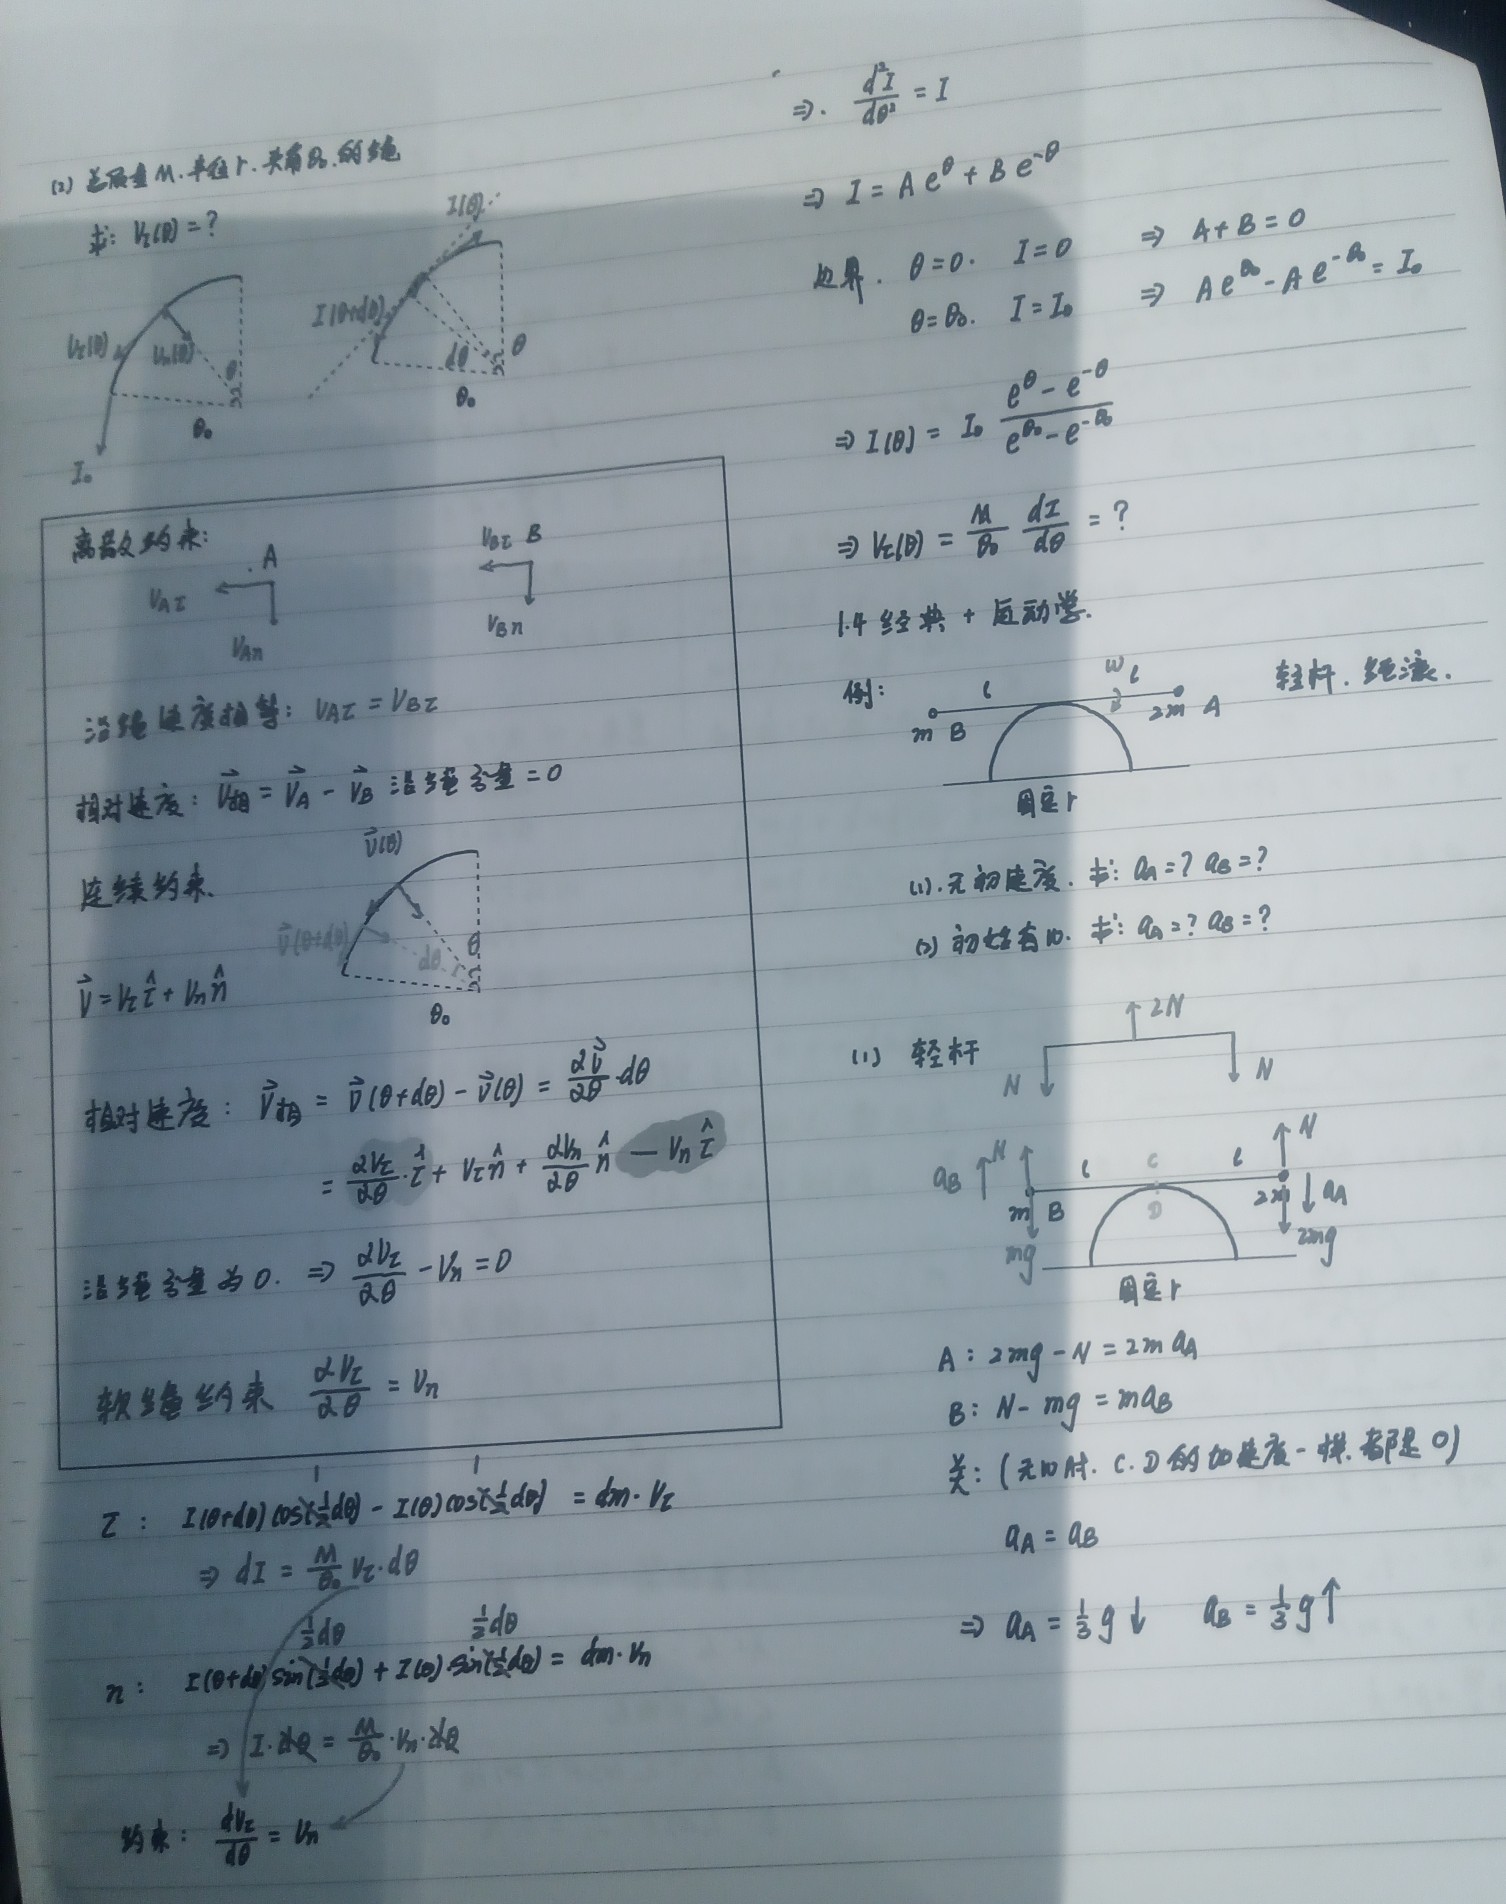 (2) 总质量M.半径r.夹角θ₀.的绳
求: Vτ(θ)=?
I(θ)
I(θ+dθ)
Vτ(θ)
Vn(θ)
θ
dθ
θ
θ₀
θ₀
I₀
离散约束:
A
VAτ
VAn
VBτ B
VBn
沿绳速度相等: VAτ = VBτ
相对速度: V⃗相 = V⃗A - V⃗B 沿绳分量=0
连续约束.
V⃗(θ)
V⃗(θ+dθ)
dθ
θ
θ₀
V⃗ = Vτ τ̂ + Vn n̂
相对速度: V⃗相 = V⃗(θ+dθ) - V⃗(θ) = ∂V⃗/∂θ·dθ
= ∂Vτ/∂θ·τ̂ + Vτ n̂ + ∂Vn/∂θ n̂ - Vn τ̂
沿绳分量为0. ⇒ ∂Vτ/∂θ - Vn = 0
软绳约束 ∂Vτ/∂θ = Vn
1 1
τ: I(θ+dθ) cos(½dθ) - I(θ) cos(½dθ) = dm·Vτ
⇒ dI = M/θ₀ Vτ·dθ
½dθ ½dθ
n: I(θ+dθ) sin(½dθ) + I(θ)·sin(½dθ) = dm·Vn
⇒ I·dθ = M/θ₀·Vn·dθ
约束: dVτ/dθ = Vn
⇒. d²I/dθ² = I
⇒ I = A e^θ + B e^-θ
边界. θ=0. I=0 ⇒ A+B=0
θ=θ₀. I=I₀ ⇒ A e^θ₀ - A e^-θ₀ = I₀
⇒ I(θ) = I₀ (e^θ - e^-θ)/(e^θ₀ - e^-θ₀)
⇒ Vτ(θ) = M/θ₀ dI/dθ = ?
1.4 经典+运动学.
例:
l
ω
l
轻杆.纯滚.
m B
2m A
固定r
(1).无初速度.求: aA=? aB=?
(2) 初始有ω.求: aA=? aB=?
(1) 轻杆
2N
N
N
N
aB
N
l
C
l
m B
D
2m
aA
mg
2mg
固定r
A: 2mg - N = 2m aA
B: N - mg = m aB
关: (无ω时.C.D的加速度一样.都是0)
aA = aB
⇒ aA = ⅓g↓ aB = ⅓g↑